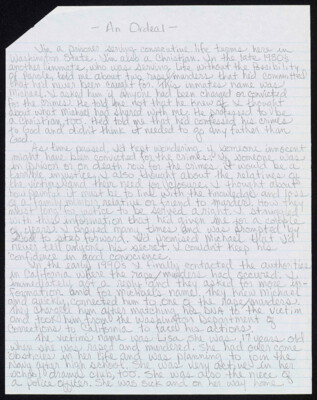 - An Ordeal -
I'm a prisoner serving consecutive life terms here in
Washington State. I'm also a Christian. In the late 1980s
another inmate, who was serving life without the possibility
of parole, told me about two rape/murders that he'd committed
that he'd not been caught for. This inmate's name was
Michael. I asked him if anyone had been charged or convicted
for the crimes. He told me not that he knew of. I thought
about what Michael had shared with me. He professed to be
a Christian, too. He'd told me that he'd confessed his crimes
to God and didn't think he needed to go any farther than
God.
As time passed, I'd kept wondering if someone innocent
might have been convicted for the crimes. If someone was
in prison or on death row for the crimes, it would be a
terrible injustice. I also thought about the relatives of
the victims and their need for closure. I thought about
how painful it must be to live with the knowledge and
of a family relative or friend to murder. How they
must long for justice to be served alright. I struggled
with the information that he'd given me for a couple
of years. I prayed many times and was prompted by
God to step forward. I'd promised Michael that I'd
never tell anyone his secret. I couldn't keep his
confidence in good conscience.
In the early 1990s I finally contacted the authorities
in California where the rape/murders had occurred. I
immediately got a reply and they asked for more in-
formation and for Michael's name. I told them his name
and quickly connected him to one of the rape/murders.
They charged him after matching his DNA to the victim
and took him from the Washington Department of
Corrections to California to face his actions.
The victim's name was Lisa. She was 17 years old
when she was raped and murdered. She had overcome
obstacles in her life and was planning to join the
Navy after high school. She was very active in her
school drama club, too. She was also the niece of
a police officer. She was sick and on her way home